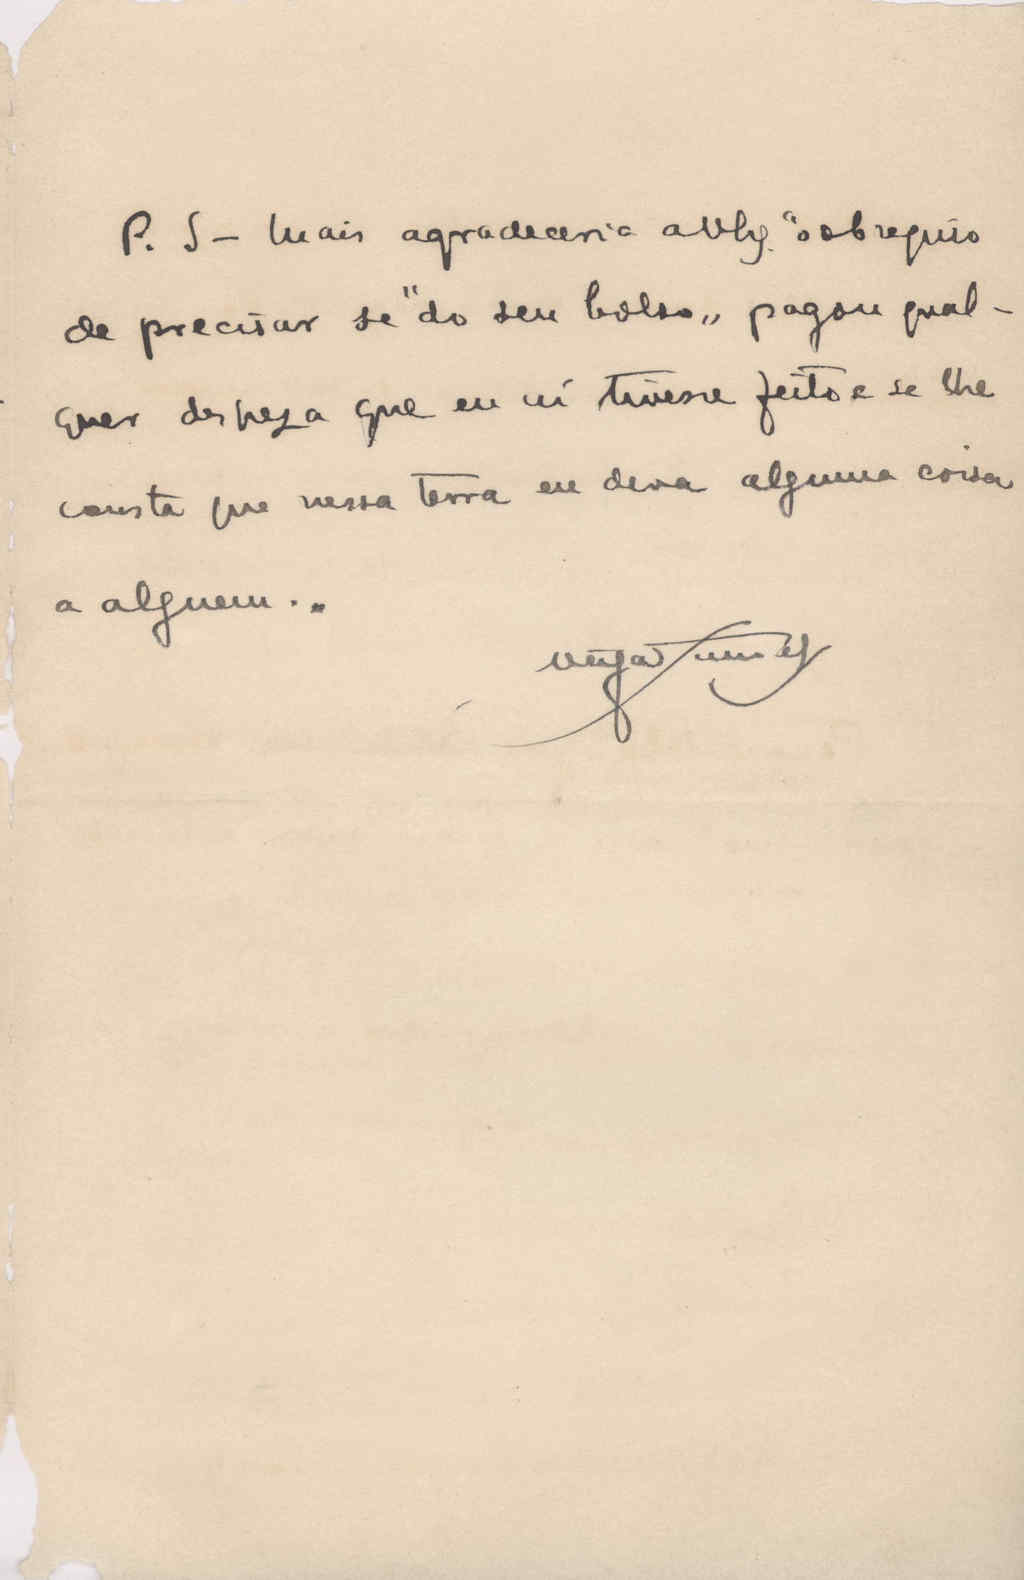 P. S – Mais agradeceria a V. Ex.ª o obsequio
de precisar se "do seu bolso,, pagou qual-
quer despeza que eu ai tivesse feito e se lhe
consta que nessa terra eu deva alguma coisa
a alguem...
Veiga Simões